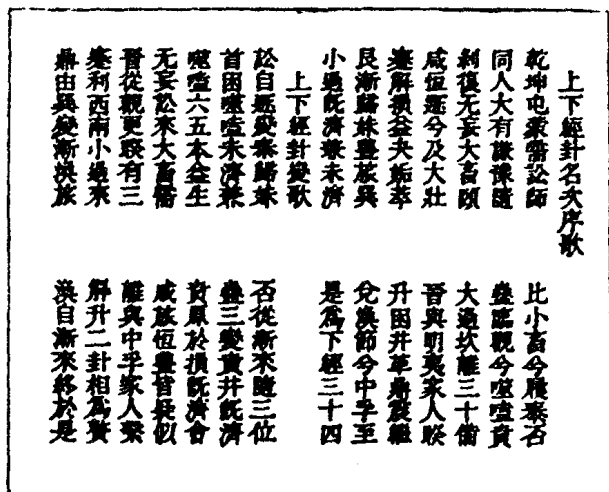 上下經卦名次序歌
乾坤屯蒙需訟師　比小畜兮履泰否
同人大有謙豫隨　蠱臨觀兮噬嗑賁
剝復无妄大畜頤　大過坎離三十備
咸恒遯兮及大壯　晉與明夷家人睽
蹇解損益夬姤萃　升困井革鼎震繼
艮漸歸妹豐旅巽　兌渙節兮中孚至
小過既濟兼未濟　是爲下經三十四
上下經卦變歌
訟自遯變泰歸妹　否從漸來隨三位
首困噬嗑未濟兼　蠱三變賁井既濟
噬嗑六五本益生　賁原於損既濟會
无妄訟來大畜需　咸旅恒豐皆疑似
晉從觀更睽有三　離與中孚家人繫
蹇利西南小過來　解升二卦相爲贅
鼎由巽變漸渙旅　渙自漸來終於是